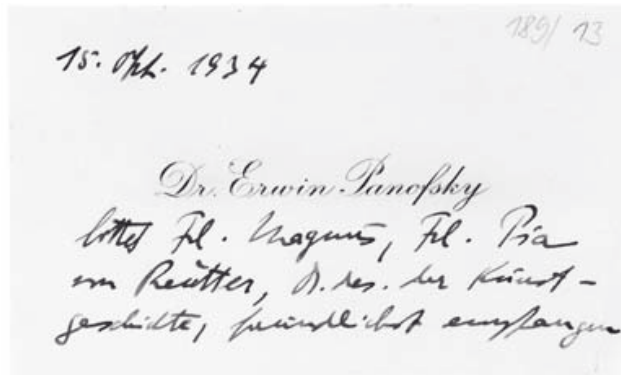 189/ 13
15. Okt. 1934
Dr. Erwin Panofsky
bittet Frl. Magnus, Frl. Pia
von Reütter, Dr. des. der Kunst-
geschichte, freundlichst empfangen